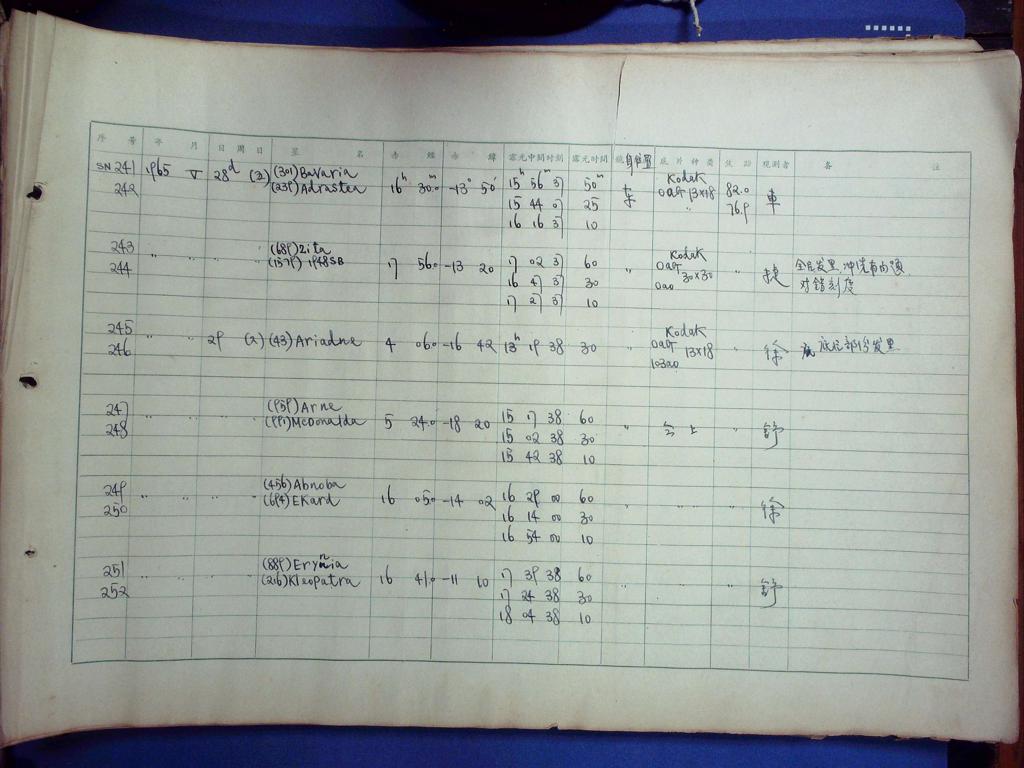 序号 年 月 日周日 星 名 赤 經 赤 緯 露光中間时刻 露光时間 鏡身位置 底片种类 焦距 观测者 备 注
SN 241 1965 V 28d (2) (301) Bavaria Kodak
242 (239) Adrastea 16h 30.0m -13° 50' 15h 56m 37 50m 东 0aF 13×18 82.0 車
15 44 07 25 〃 76.9
16 16 37 10
243 〃 〃 〃 〃 (689) Zita Kodak
244 (1579) 1948SB 17 56.0 -13 20 17 02 37 60 〃 0aF 30×30 〃 捷 全自发黑,冲洗有白浸
16 47 37 30 0a0 对错刻度
17 27 37 10
245 〃 〃 29 (2) (43) Ariadne Kodak
246 4 06.0 -16 42 13h 19 38 30 〃 0aF 13×18 〃 徐 底片部份发黑
103a0
247 〃 〃 〃 (959) Arne
248 (991) McDonalda 5 24.0 -18 20 15 17 38 60 〃 仝上 〃 舒
15 02 38 30
15 42 38 10
249 〃 〃 〃 (456) Abnoba
250 (694) Ekard 16 05.0 -14 02 16 29 00 60 〃 〃 〃 徐
16 14 00 30
16 54 00 10
251 〃 〃 〃 (889) Erynia
252 (216) Kleopatra 16 41.0 -11 10 17 39 38 60 〃 〃 〃 舒
17 24 38 30
18 04 38 10